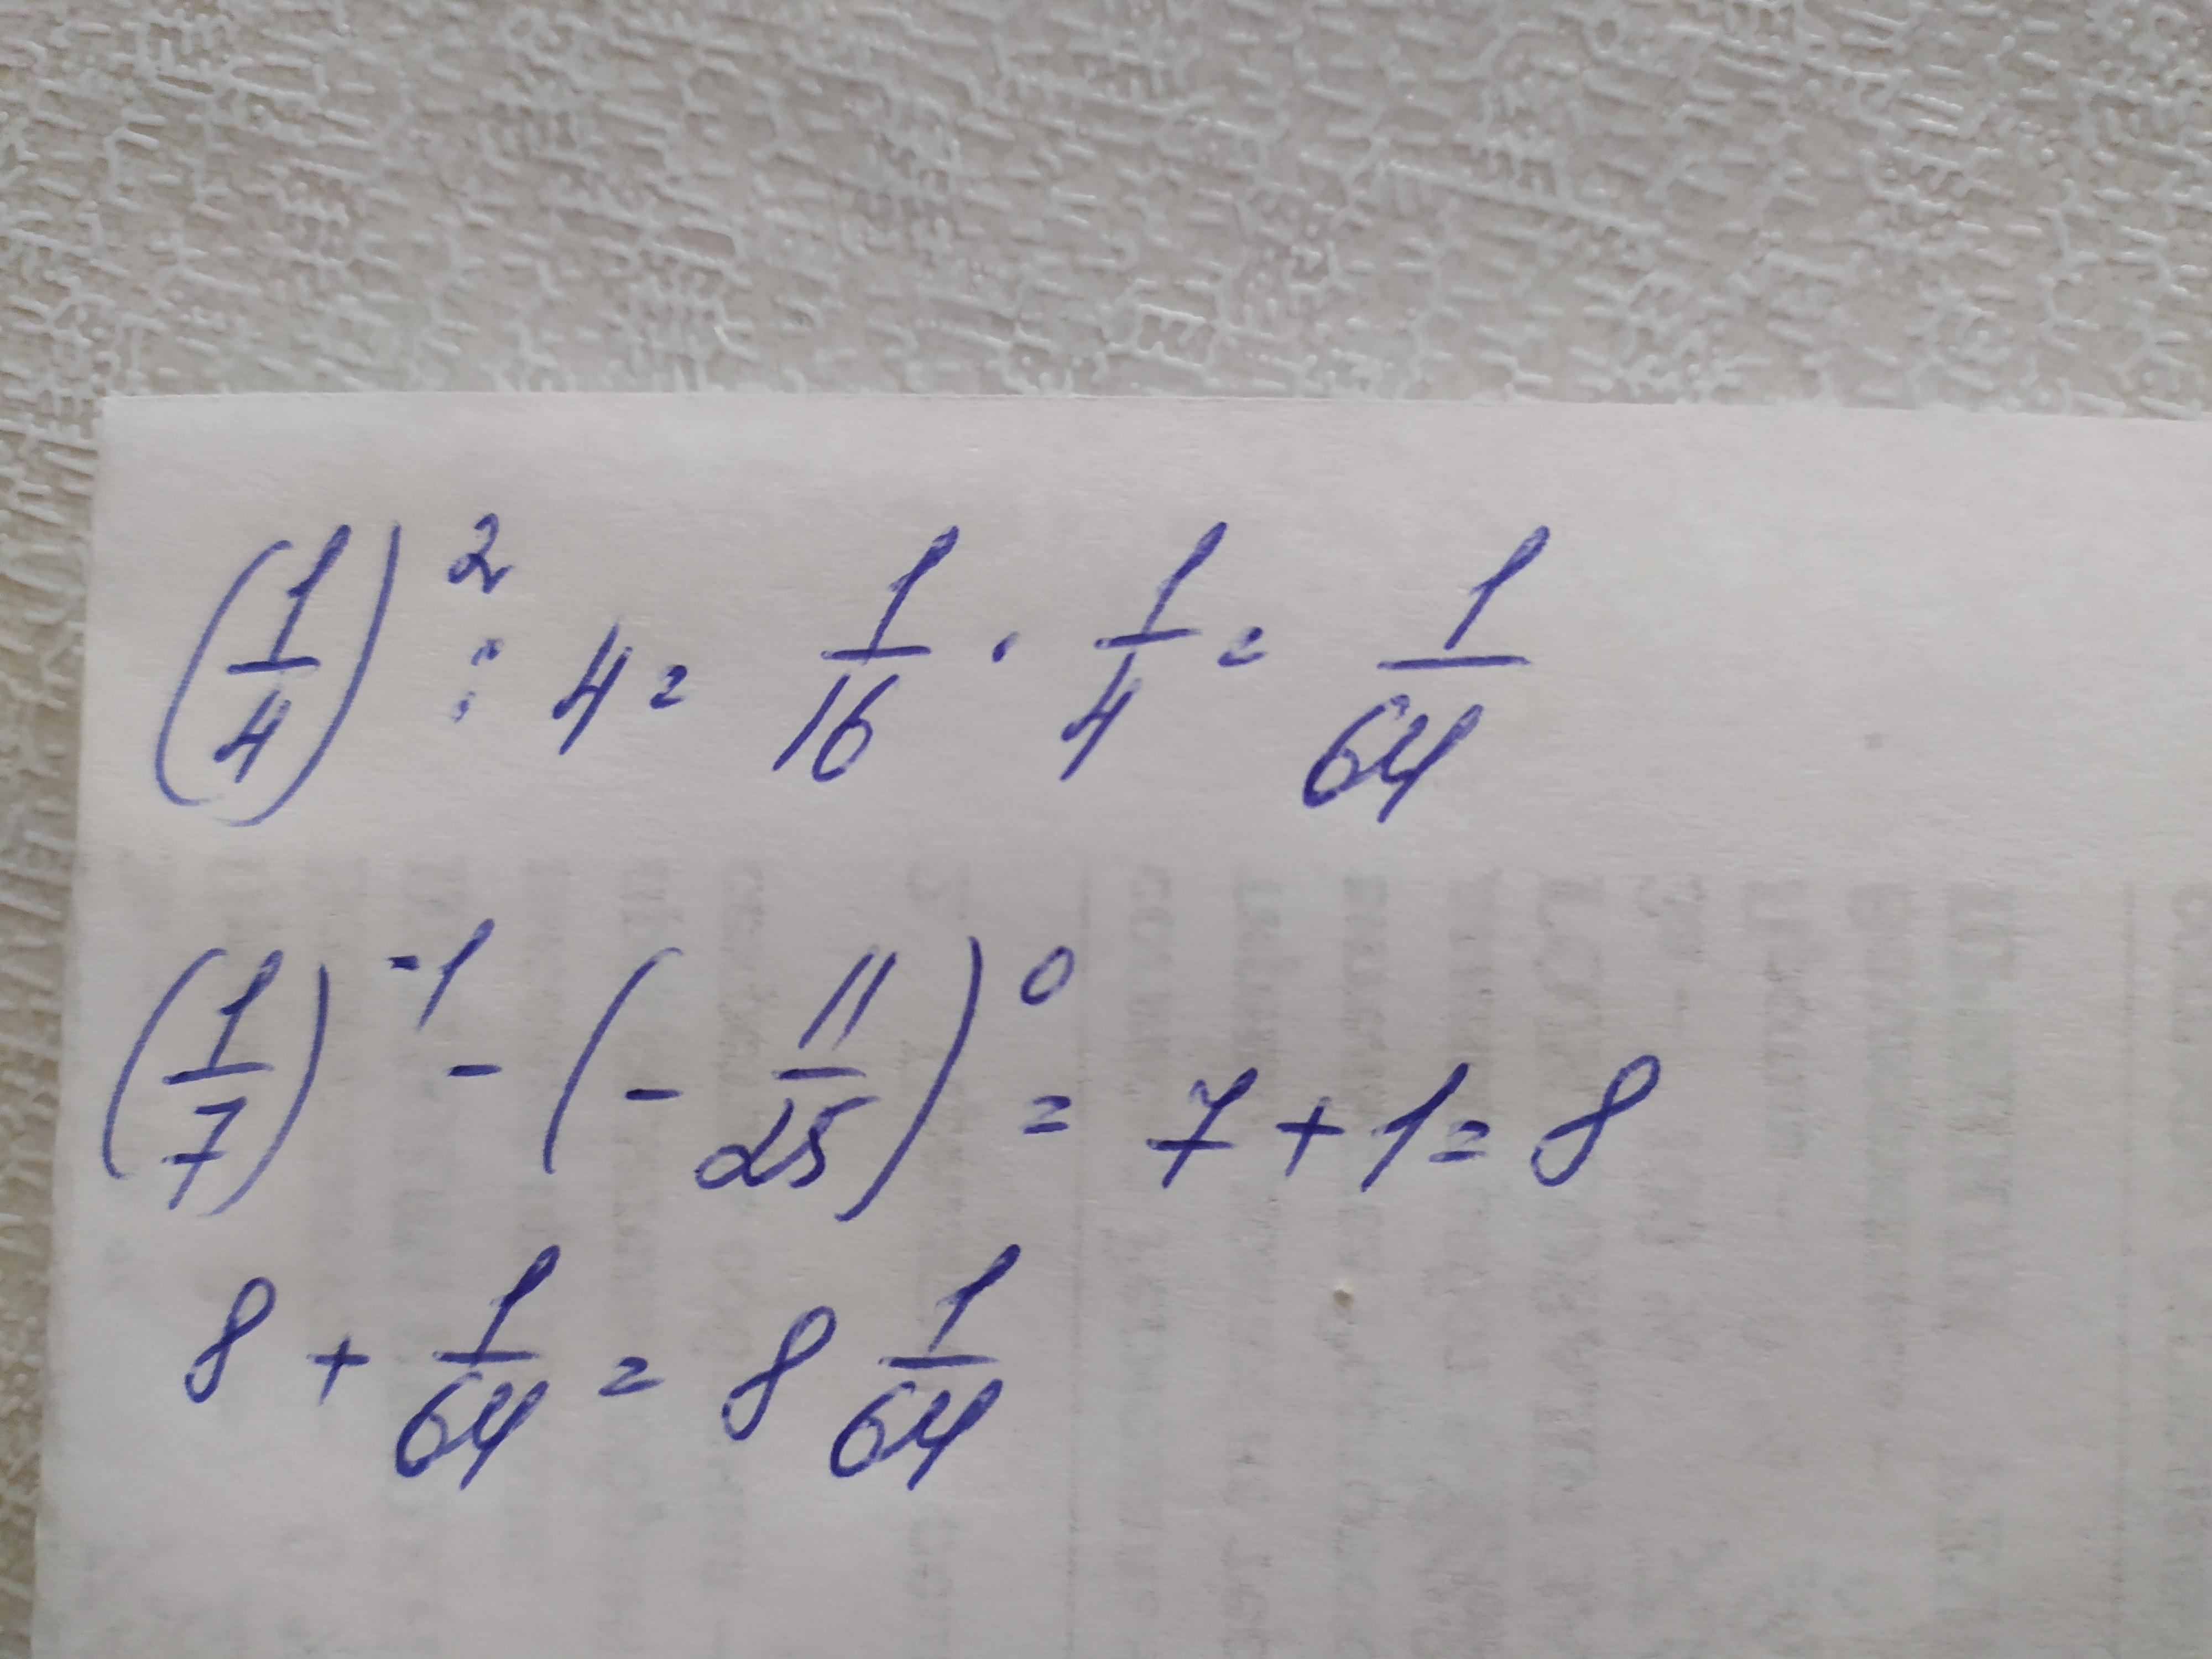 (1/4)² : 4 = 1/16 · 1/4 = 1/64
(1/7)⁻¹ - (- 11/25)⁰ = 7 + 1 = 8
8 + 1/64 = 8 1/64